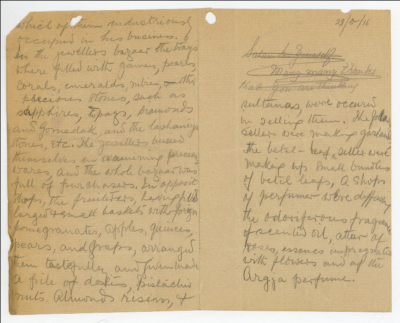 which of them industriously
occupied in his business. &
in the jewellers bazaar the trays
where filled with games, pearls
corals, emeralds, rubies, other
precious stones, such as
sapphires, topaz, diamonds
and Gomadak, and the lashaneya
stones, etc. The jewellers busied
themselves in examining precious
wares, and the whole bazaar was
full of purchasers. In opposit
shops, the fruiterers, having
large & small baskets with
pomegranates, apples, quinces,
pears, and grapes, arranged
them tastefully, and
a pile of dates, pistachio
nuts. Almonds resens, &
23/5/16
Many many thanks
that you are thinking
sultanas, were occupied
in selling them. The
sellers were making garlands
the betel-leaf, sellers were
making up small bundles
of betel leafs, & shops
of perfumer were diffusing
the odoriferous fragrance
of scented oil, attar of
roses, essence impregnated
with flowers and of the
Argja perfume.